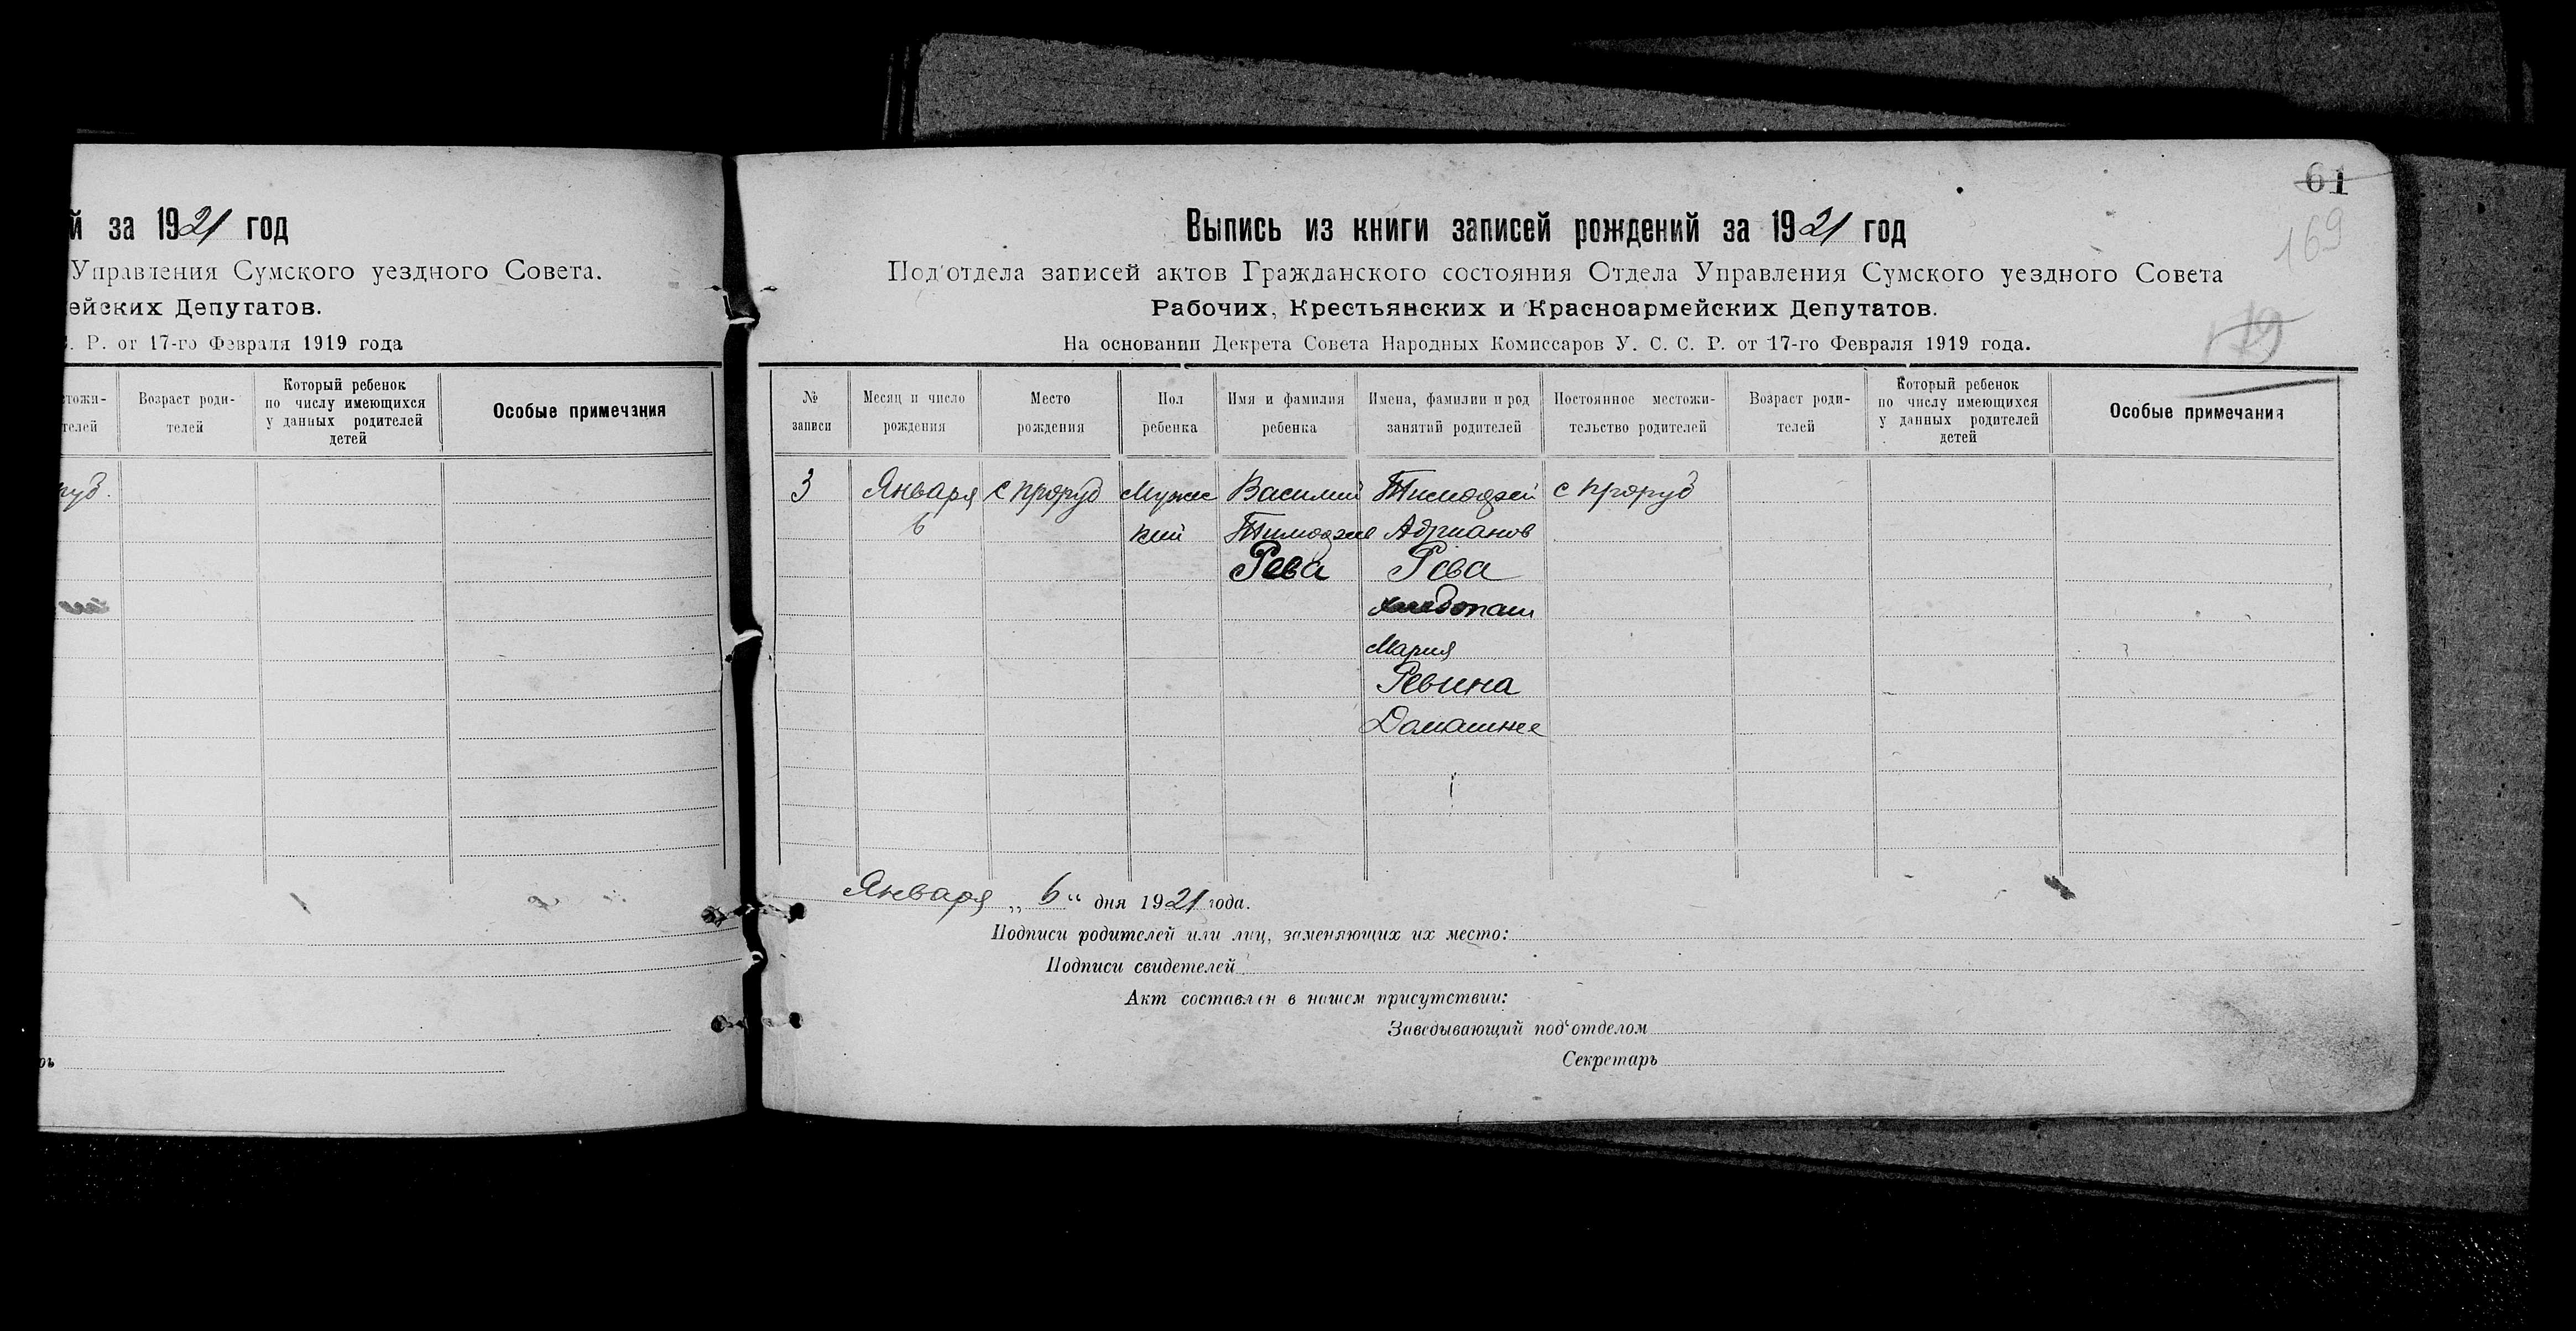 й за 1921 год
Управления Сумского уездного Совета.
ейских Депутатов.
. Р. от 17-го Февраля 1919 года
стожи-
телей
Возраст роди-
телей
Который ребенок
по числу имеющихся
у данных родителей
детей
Особые примечания
руд.
рь
61
169
Выпись из книги записей рождений за 1921 год
Под'отдела записей актов Гражданского состояния Отдела Управления Сумского уездного Совета
Рабочих, Крестьянских и Красноармейских Депутатов.
На основании Декрета Совета Народных Комиссаров У. С. С. Р. от 17-го Февраля 1919 года.
№
записи
Месяц и число
рождения
Место
рождения
Пол
ребенка
Имя и фамилия
ребенка
Имена, фамилии и род
занятий родителей
Постоянное местожи-
тельство родителей
Возраст роди-
телей
Который ребенок
по числу имеющихся
у данных родителей
детей
Особые примечания
3
Января
6
с Проруб
Мужс
кий
Василий
Тимофее
Рева
Тимофей
Адрианов
Рева
хлебопаш
Мария
Ревина
Домашнее
с Проруб
Января „ 6 “ дня 1921 года.
Подписи родителей или лиц, заменяющих их место:
Подписи свидетелей
Акт составлен в нашем присутствии:
Заведывающий под'отделом
Секретарь